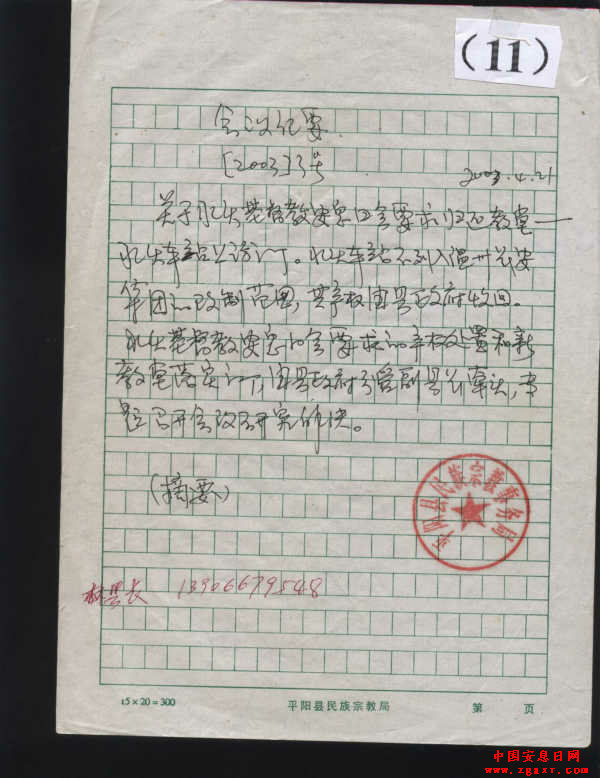 (11)
会议纪要
[2003]3号
2003.4.21
关于水头基督教安息日会要求归还教堂—
水头车站上访门。水头车站不列入温州长安
集团的改制范围，其产权由县政府收回。
水头基督教安息日会要求的产权处置和新
教堂落实门，由县政府分管副县长牵头，专
题召开会议研究解决。
(摘要)
平阳县民族宗教事务局
林县长 13906679548
15×20=300 平阳县民族宗教局 第 页
中国安息日网
www.zgaxr.com